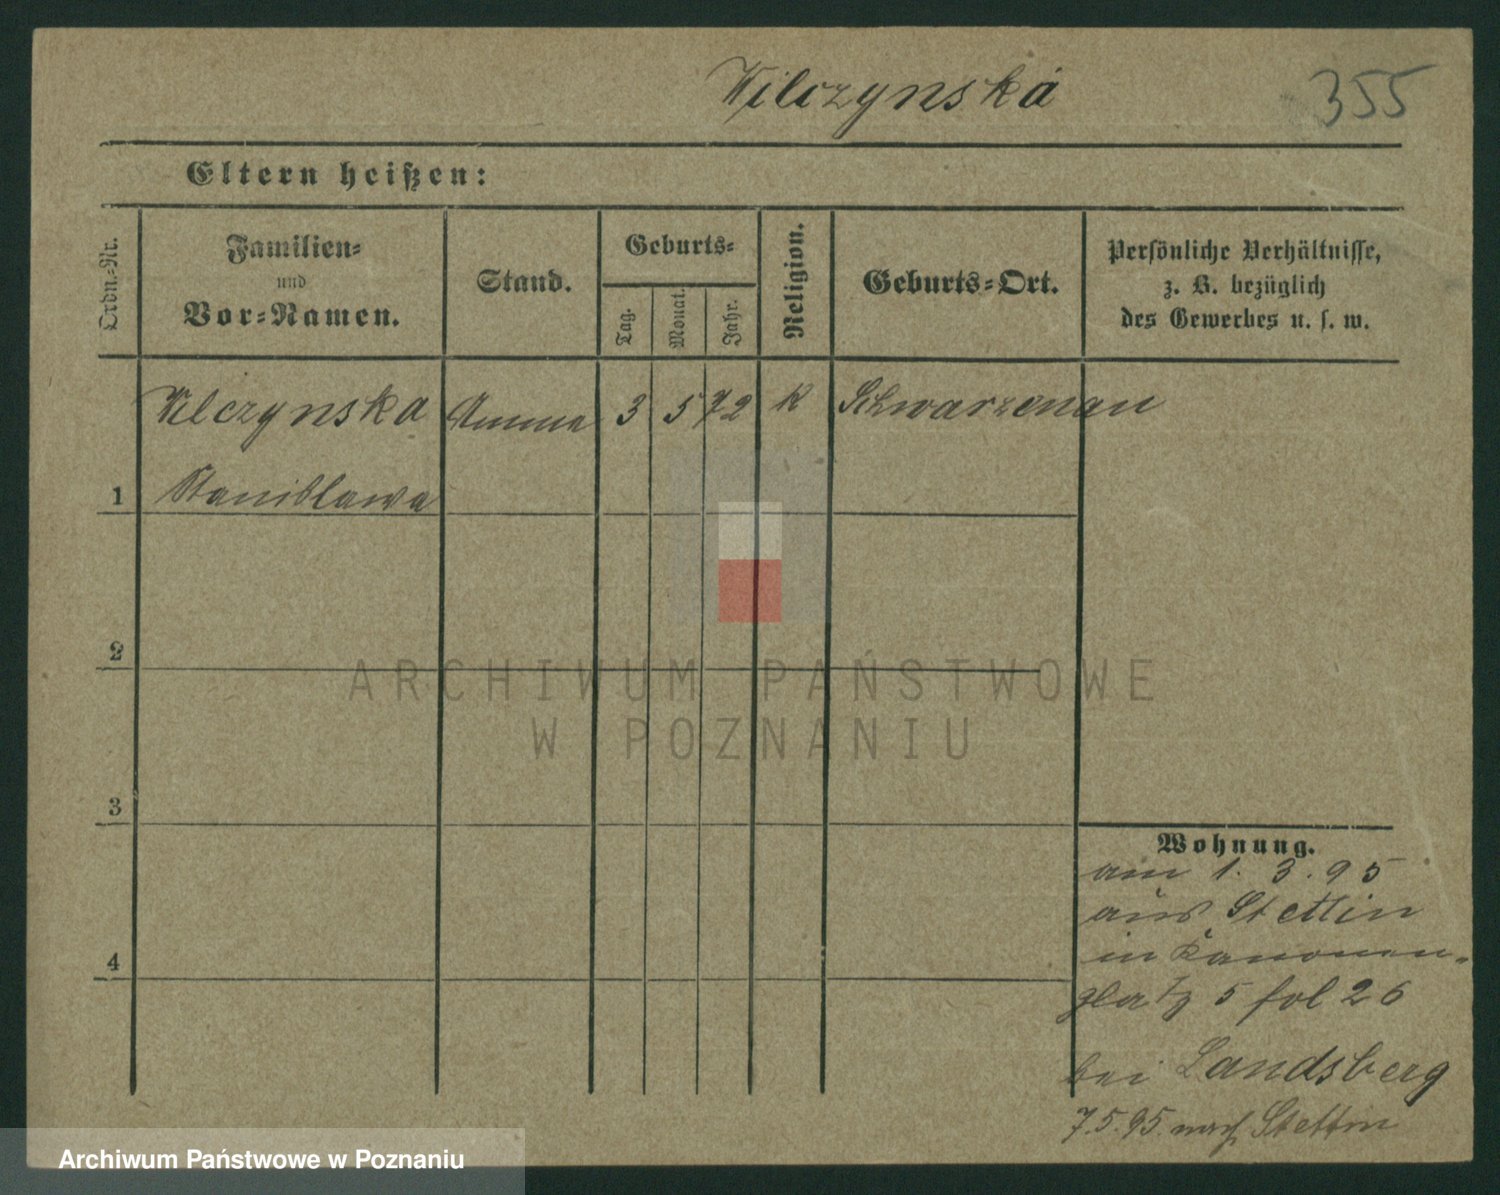 Wilczynska
355
Eltern heißen:
Ordn.-Nr.
Familien-
und
Vor-Namen.
Stand.
Geburts-
Tag.
Monat.
Jahr.
Religion.
Geburts-Ort.
Persönliche Verhältnisse,
z. B. bezüglich
des Gewerbes u. s. w.
Wilczynska Amme 3 5 72 K Schwarzenau
1 Stanislawa
2
3
4
Wohnung.
am 1. 3. 95
aus Stettin
in Kanonen-
platz 5 fol 26
bei Landsberg
7.5.95. nach Stettin
ARCHIWUM PAŃSTWOWE
W POZNANIU
Archiwum Państwowe w Poznaniu